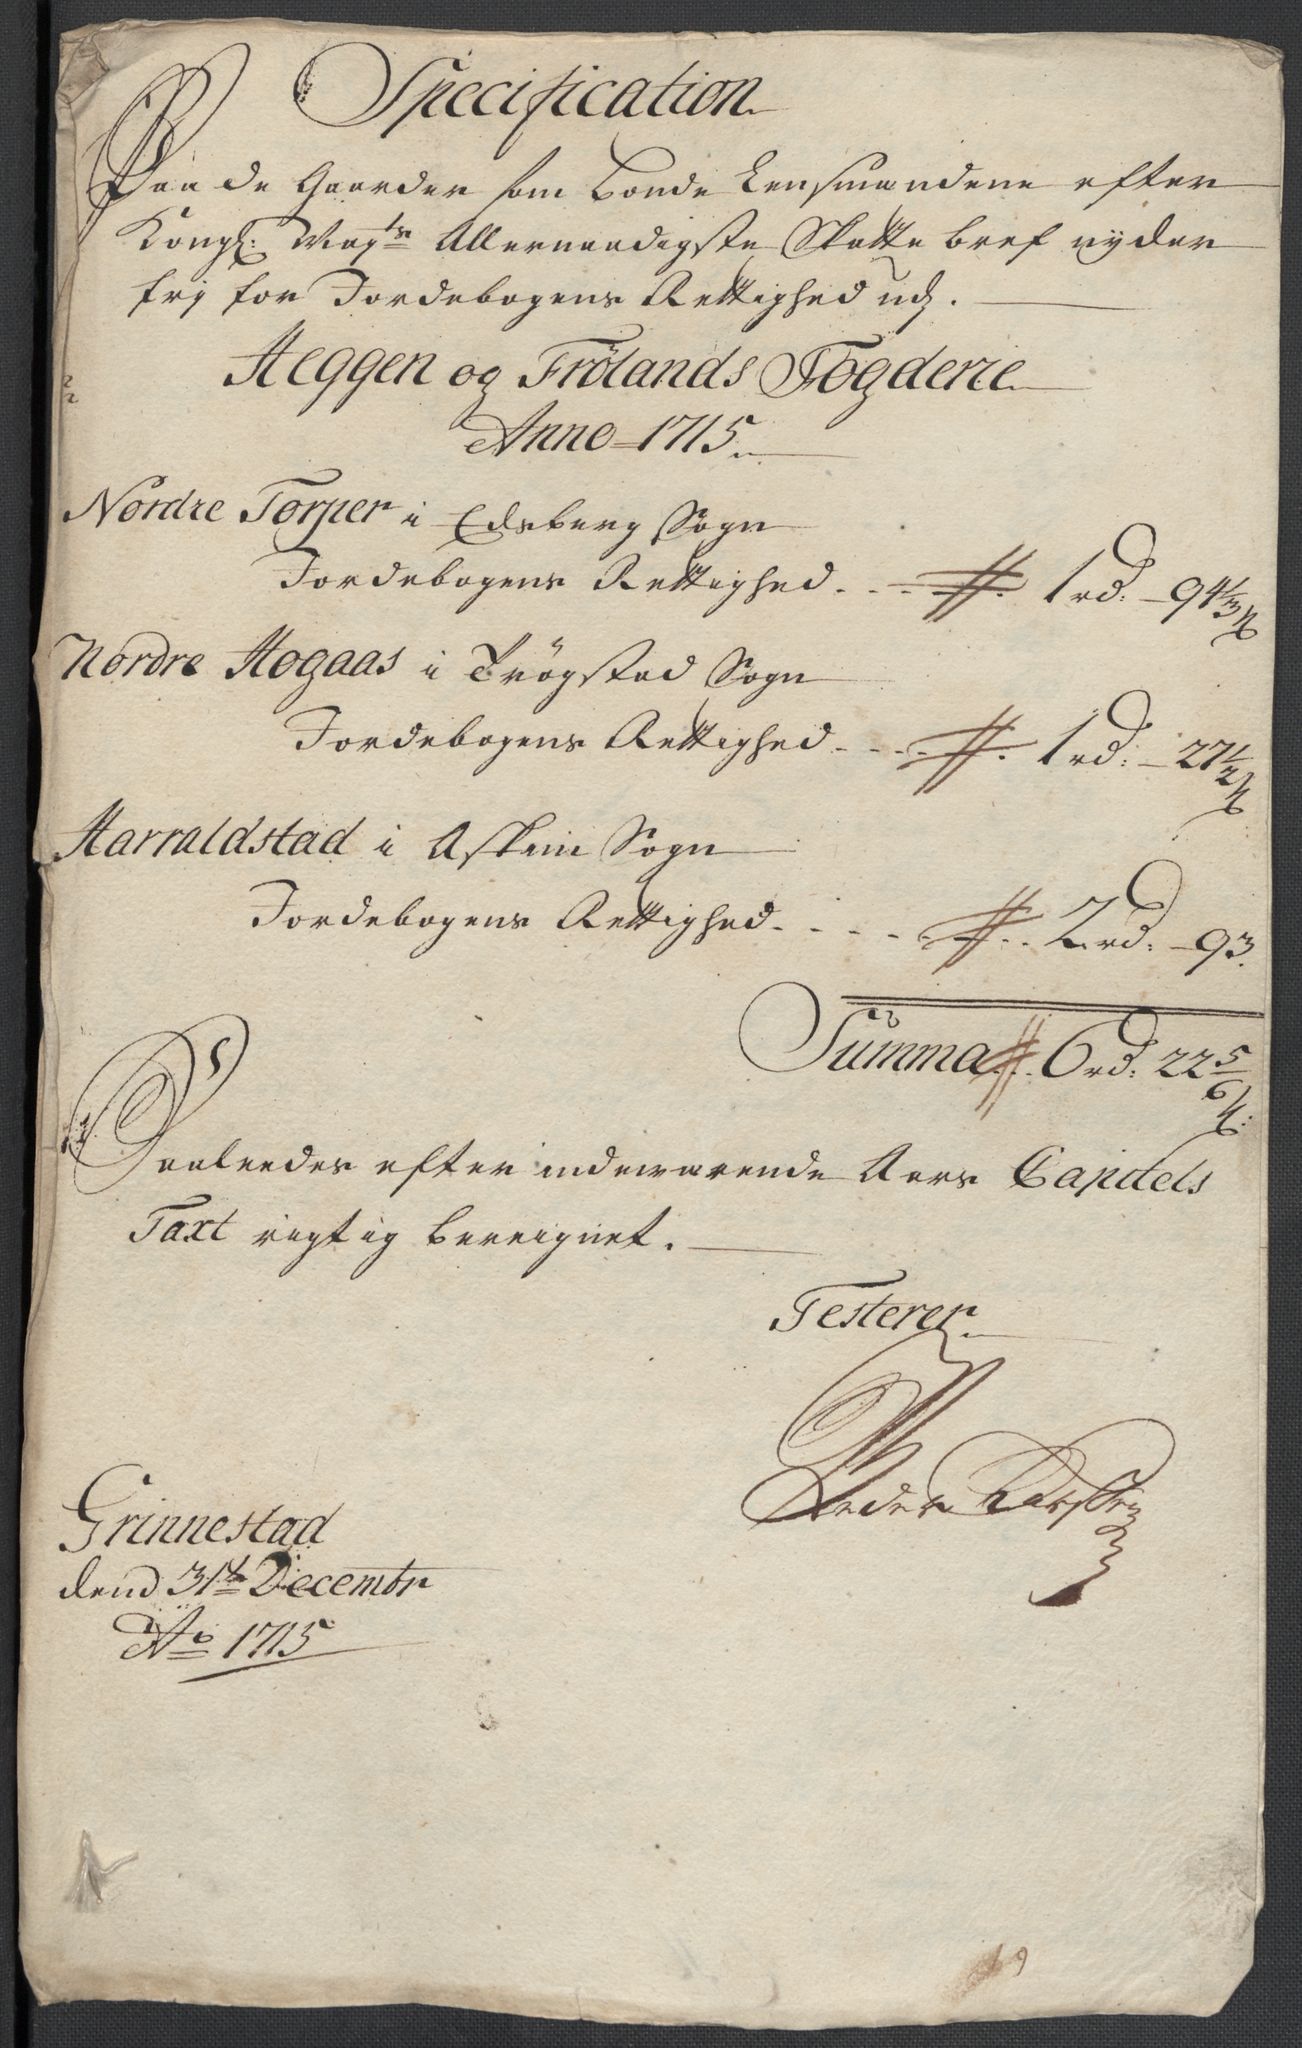 Specification
Paa de Gaarder som Bonde Lensmændene efter
Kongl: Mayts Allernaadigste Skatte bref nyder
frj for Jordebogens Rettighed udj.
Heggen og Frølands Fogderie
Anno 1715
Nordre Torper i Edsberg Sogn
Jordebogens Rettighed . . . 1 rd: – 94 1/3 ß
Nordre Hogaas i Trøgstad Sogn
Jordebogens Rettighed . . . 1 rd: – 27 1/2 ß
Harraldstad i Askim Sogn
Jordebogens Rettighed . . . . . 2 rd: – 93.
Summa . . 6 rd: 22 5/6 ß:
Saaleedes efter indewærende Aars Capitels
Taxt rigtig bereignet.
Testerer
Peder
Grinnestad
dend 31te Decembr
Ao 1715
19